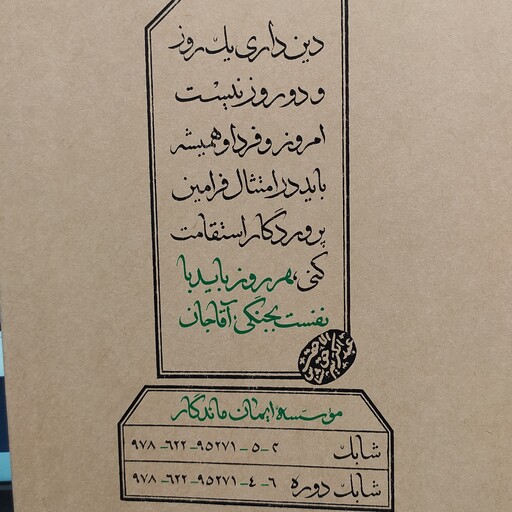 دین داری یک روز
و دو روز نیست
امروز و فردا و همیشه
باید در امتثال فرامین
پروردگار استقامت
کنی، هر روز باید با
نفست بجنگی آقاجان
مؤسسه ایمان ماندگار
شابک ۲-۵-۹۵۲۷۱-۶۲۲-۹۷۸
شابک دوره ۶-۴-۹۵۲۷۱-۶۲۲-۹۷۸